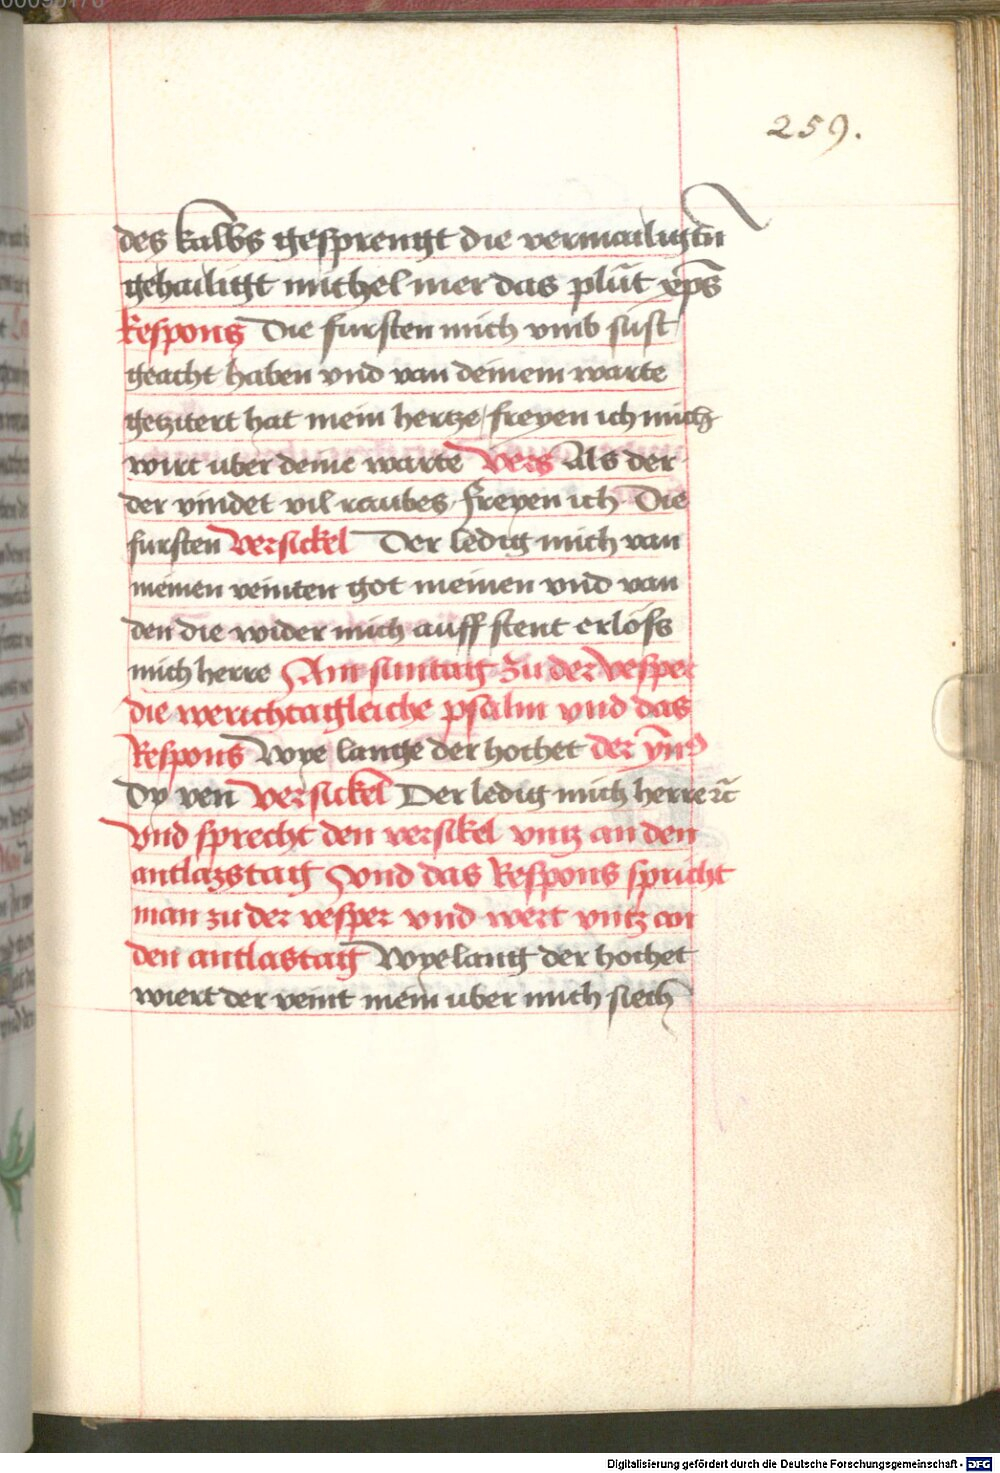 259.
des kalbs gesprengt die vermailigtn
gehailigt michel mer das plut xps
Respons Die fursten mich vmb sust
geacht haben vnd van deinem warte
getzitert hat mein hertze / freyen ich mich
wirt uber deine warte Vers Als der
der vindet vil raubes freyen ich Die
fursten Versickel Der ledig mich van
meinen veinten got meinen vnd van
den die wider mich auff stent erloss
mich herre Am suntag zu der vesper
die werichtagleiche psalm vnd das
Respons Wye lange der hochet der ymd
Dy ven Versickel Der ledig mich herre rc
vnd sprecht den versikel vntz an den
antlazstag vnd das Respons spricht
man zu der vesper vnd wert vntz an
den antlastag Wye lang der hochet
wiert der veint mein uber mich siech
Digitalisierung gefördert durch die Deutsche Forschungsgemeinschaft - DFG